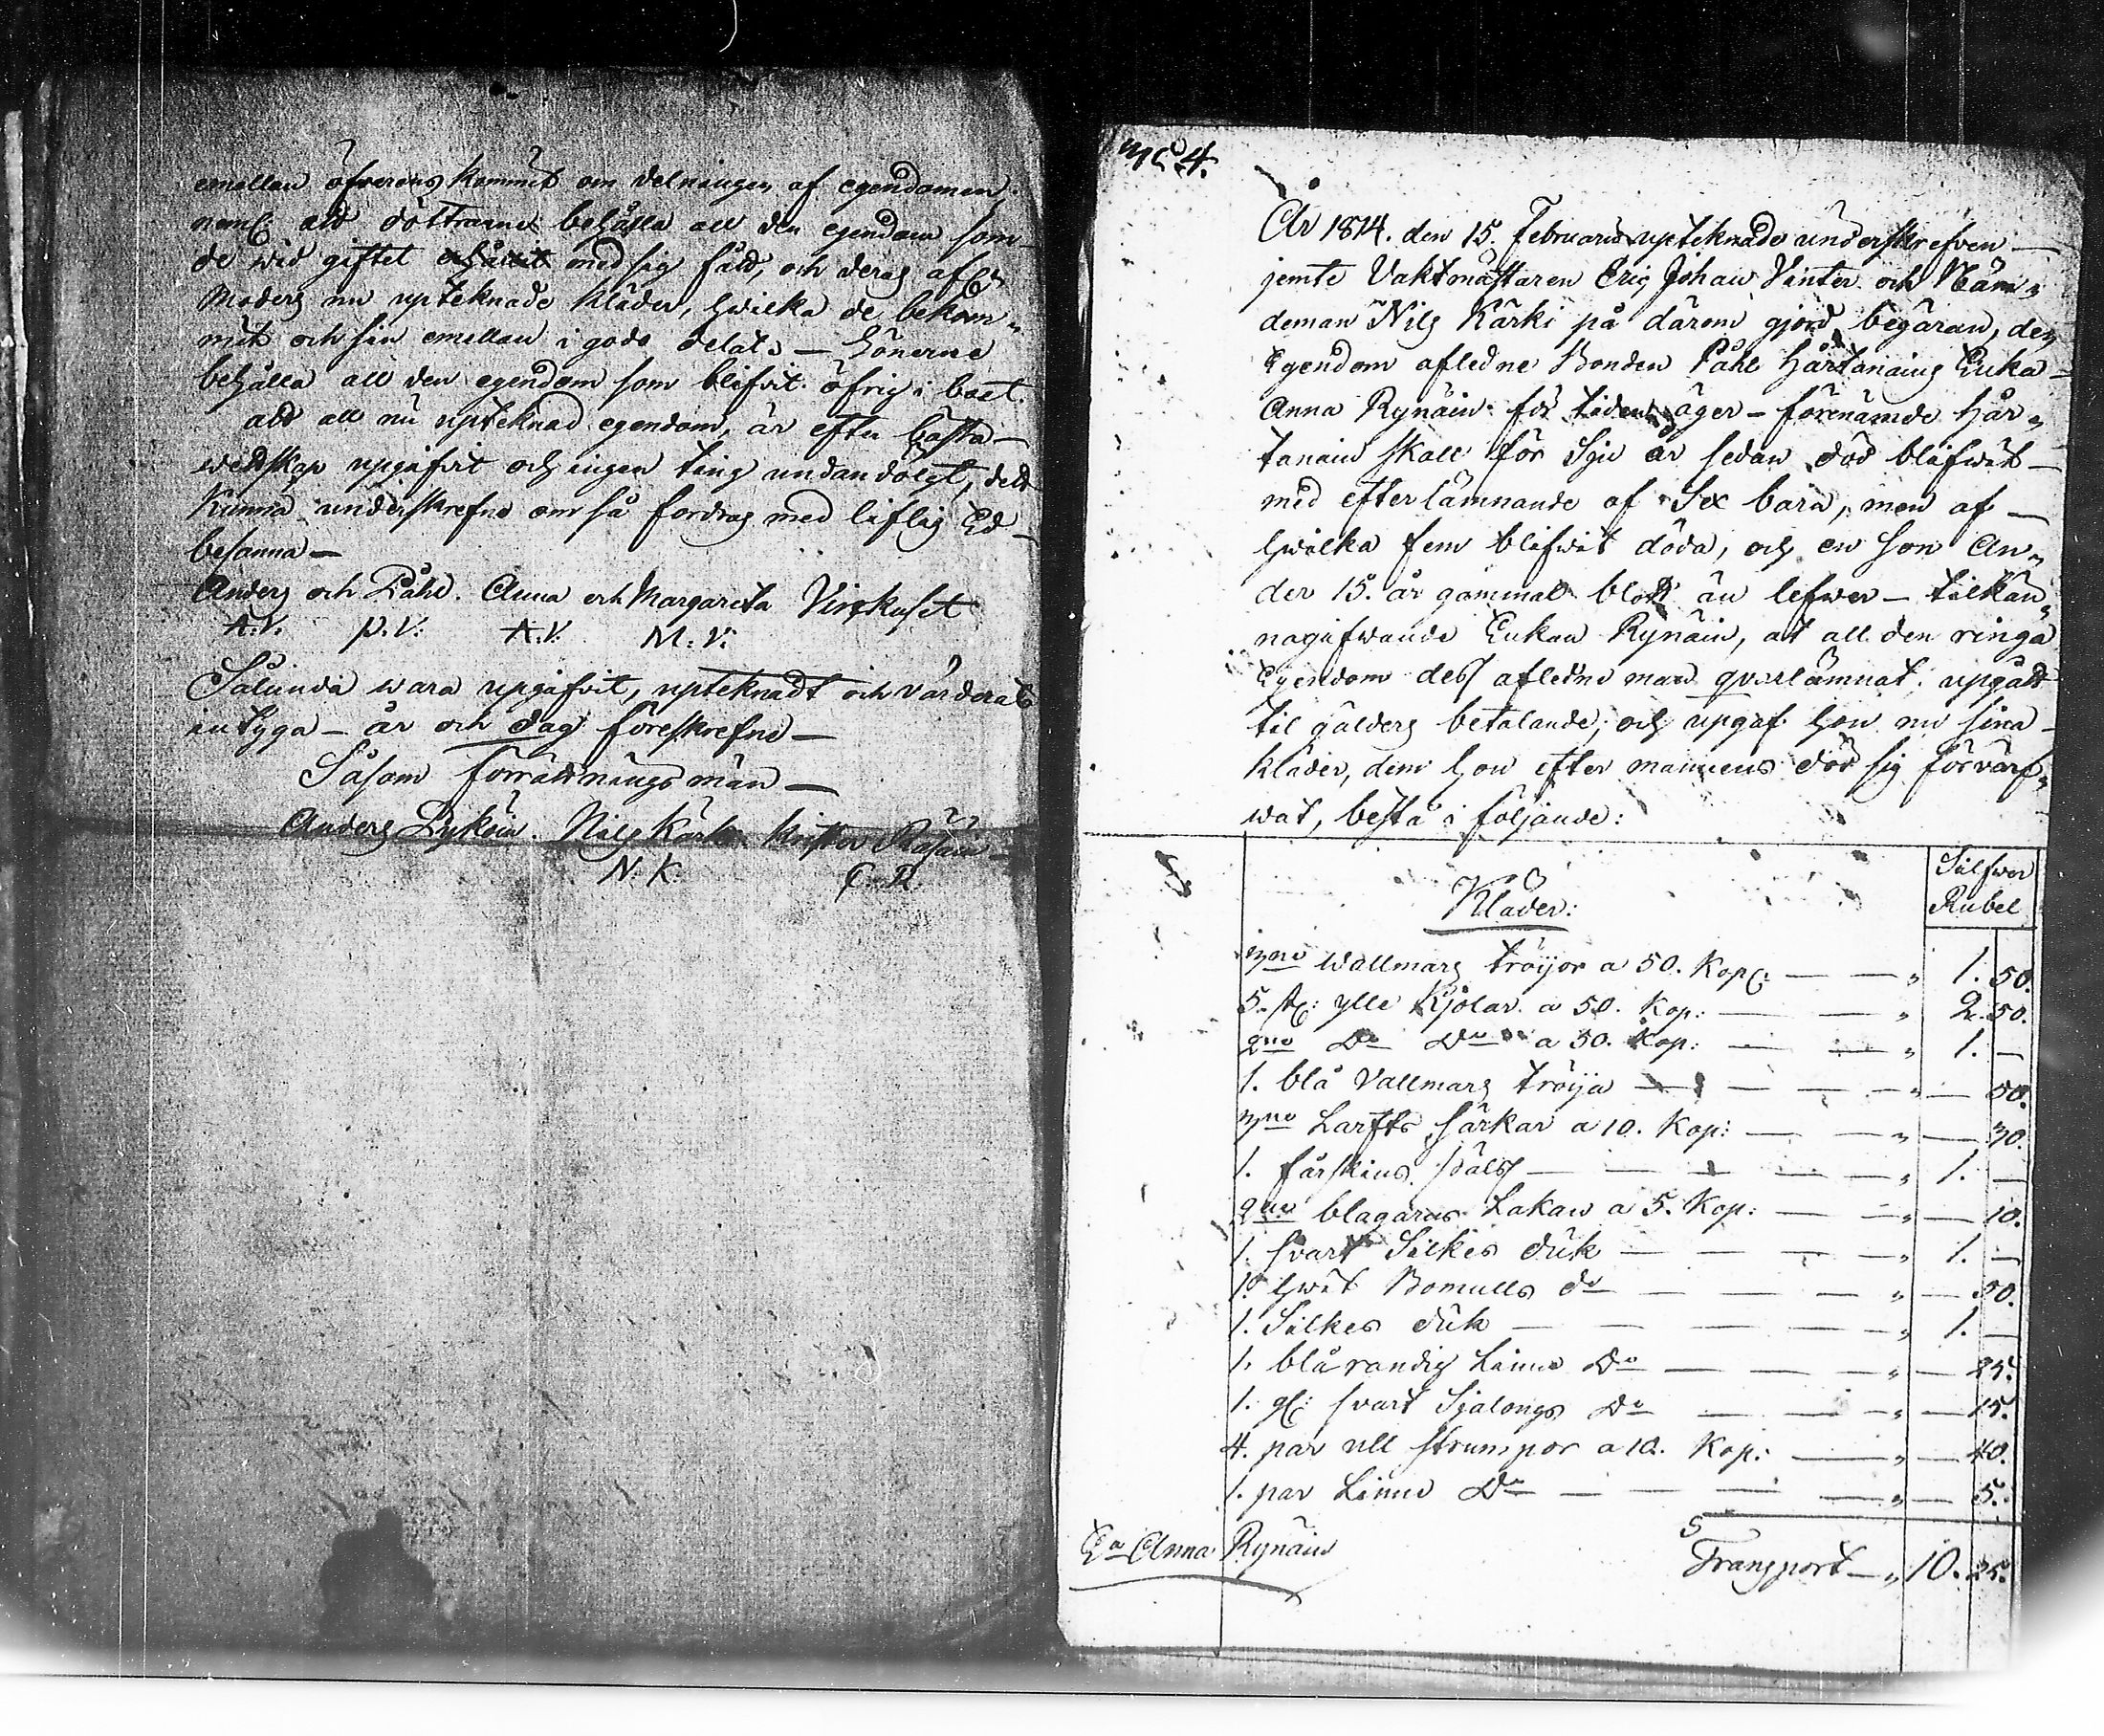 emellan öfverens kommit om delningen af egendomen,
neml: att döttrarne behålla all den egendom som
de wid giftet med sig fådt, och deras afl:
Moders nu upteknade kläder, hwilka de bekom„
mit och sin emellan i godo delat. — Sönerne
behålla all den egendom som blifvit öfrig i boet.
att all nu upteknad egendom, är efter bästa —
wettskap upgifvit och ingen ting undandölgt, dett
kunna underskrefne om så fordras med liflig Ed —
besanna —
Anders och Påhl. Anna och Margareta Virskuset
A. V. P. V. A. V. M. V.
Sålunda wara upgifvit, upteknadt och värderat
intyga — år och dag föreskrefne —
Såsom förrättnings män —
Anders Nils Kärki Krister Räsäin
N. K. C. R.
N:o 4.
År 1814. den 15. Februarii upteknade underskrefven —
jemte Vaktmästaren Eric Johan Vinter och Näm„
deman Nils Kärki på därom gjord begäran, den
Egendom afledne Bonden Påhl Hårtanains Enka —
Anna Rynäin för tiden äger — förenämde Hår„
tanain skall för Sju år sedan död blifwit —
med efterlämnande af Sex barn, men af —
hwilka fem blifwit döda, och en son An„
der 15. år gammal blott än lefwer — tilkän„
nagifwande Enkan Rynäin, at all den ringa
Egendom dess afledne man qvarlämnat upgått
til gälders betalande, och upgaf hon nu sina —
kläder, dem hon efter mannens död sig förvärf„
wat, bestå i följande:
Silfwer
Kläder: Rubel
3ne Wallmars tröijor a 50. Kop: — — „ 1. 50.
5. st: ylle Kjolar a 50. Kop: — — „ 2. 50.
2ne Do Do a 50. Kop: — — „ 1. —
1. blå Vallmars tröija — — — „ — 50.
3ne Larfts särkar a 10. Kop: — — „ — 30.
1. fårskins päls — — — „ 1. —
2ne blagarns Lakan a 5. Kop: — — „ — 10.
1. svart Silkes duk — — — „ 1. —
1. hwit Bomulls do — — — „ — 50.
1. Silkes duk — — — — „ 1. —
1. blå randig Linne Do — — — „ — 25.
1. gl: svart Sjalongs Do — — „ — 15.
4. par ull strumpor a 10. Kop: — „ — 40.
1. par Linne Do — — — — „ — 5.
Ea Anna Rynäin Transport — „ 10. 25.